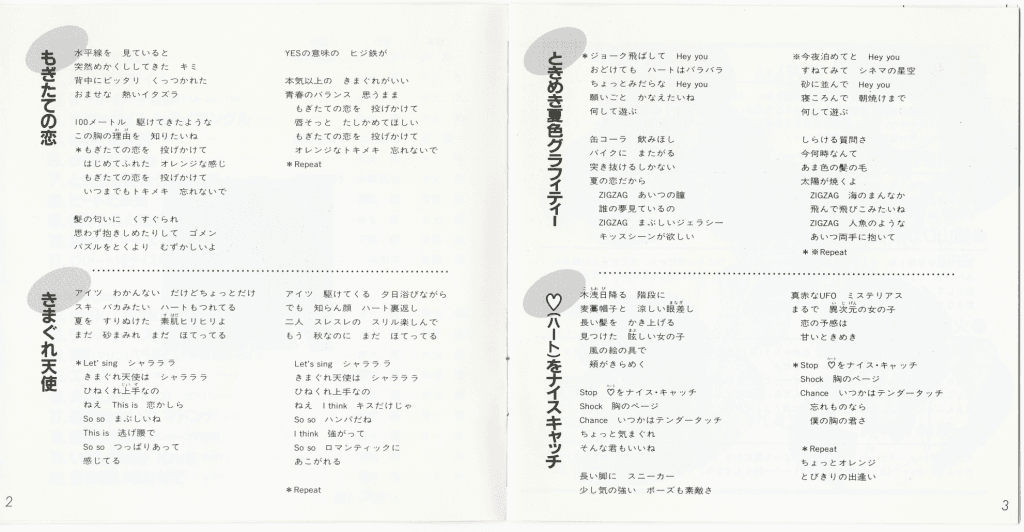 もぎたての恋
水平線を　見ていると
突然めかくししてきた　キミ
背中にピッタリ　くっつかれた
おませな　熱いイタズラ
100メートル　駆けてきたような
この胸の理由を　知りたいね
＊もぎたての恋を　投げかけて
はじめてふれた　オレンジな感じ
もぎたての恋を　投げかけて
いつまでもトキメキ　忘れないで
髪の匂いに　くすぐられ
思わず抱きしめたりして　ゴメン
パズルをとくより　むずかしいよ
YESの意味の　ヒジ鉄が
本気以上の　きまぐれがいい
青春のバランス　思うまま
もぎたての恋を　投げかけて
唇そっと　たしかめてほしい
もぎたての恋を　投げかけて
オレンジなトキメキ　忘れないで
＊Repeat
きまぐれ天使
アイツ　わかんない　だけどちょっとだけ
スキ　バカみたい　ハートもつれてる
夏を　すりぬけた　素肌ヒリヒリよ
まだ　砂まみれ　まだ　ほてってる
＊Let' sing　シャララ ラ
きまぐれ天使は　シャラララ
ひねくれ上手なの
ねえ　This is　恋かしら
So so　まぶしいね
This is　逃げ腰で
So so　つっぱりあって
感じてる
アイツ　駆けてくる　夕日浴びながら
でも　知らん顔　ハート裏返し
二人　スレスレの　スリル楽しんで
もう　秋なのに　まだ　ほてってる
Let's sing　シャララ ラ
きまぐれ天使は　シャラララ
ひねくれ上手なの
ねえ　I think　キスだけじゃ
So so　ハンパだね
I think　強がって
So so　ロマンティックに
あこがれる
＊Repeat
2
ときめき夏色グラフィティー
＊ジョーク飛ばして　Hey you
おどけても　ハートはバラバラ
ちょっとみだらな　Hey you
願いごと　かなえたいね
何して遊ぶ
缶コーラ　飲みほし
バイクに　またがる
突き抜けるしかない
夏の恋だから
ZIGZAG　あいつの瞳
誰の夢見ているの
ZIGZAG　まぶしいジェラシー
キッスシーンが欲しい
※今夜泊めてと　Hey you
すねてみて　シネマの星空
砂に並んで　Hey you
寝ころんで　朝焼けまで
何して遊ぶ
しらける質問さ
今何時なんて
あま色の髪の毛
太陽が焼くよ
ZIGZAG　海のまんなか
飛んで飛びこみたいね
ZIGZAG　人魚のような
あいつ両手に抱いて
＊※Repeat
♡(ハート)をナイス・キャッチ
木洩日降る　階段に
麦藁帽子と　涼しい眼差し
長い髪を　かき上げる
見つけた　眩しい女の子
風の絵の具で
頬がきらめく
Stop　♡をナイス・キャッチ
Shock　胸のページ
Chance　いつかはテンダータッチ
ちょっと気まぐれ
そんな君もいいね
長い脚に　スニーカー
少し気の強い　ポーズも素敵さ
真赤なUFO　ミステリアス
まるで　異次元の女の子
恋の予感は
甘いときめき
＊Stop　♡をナイス・キャッチ
Shock　胸のページ
Chance　いつかはテンダータッチ
忘れものなら
僕の胸の君さ
＊Repeat
ちょっとオレンジ
とびきりの出逢い
3